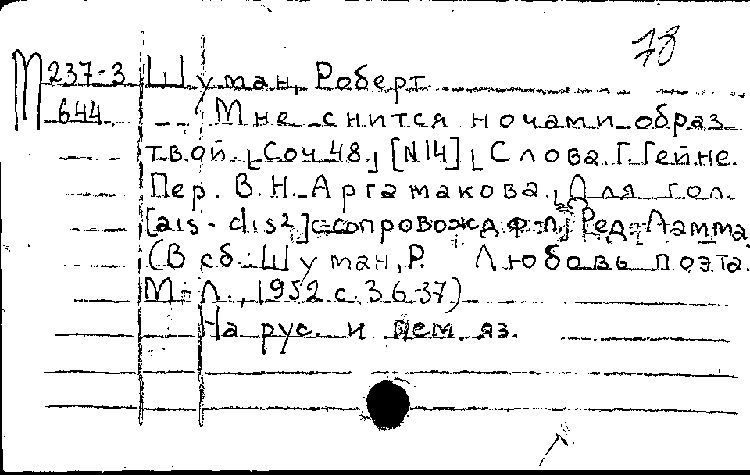 78
М 237-3 Шуман, Роберт
644 Мне снится ночами образ
твой. [Соч. 48,] [N14] [Слова Г. Гейне.
Пер. В.Н. Аргамакова. Для гол.
[ais - dis2] с сопровожд. ф-п.] Ред. Ламма
(В сб.: Шуман, Р. Любовь поэта.
М.-Л., 1952 с. 36-37)
На рус. и нем. яз.